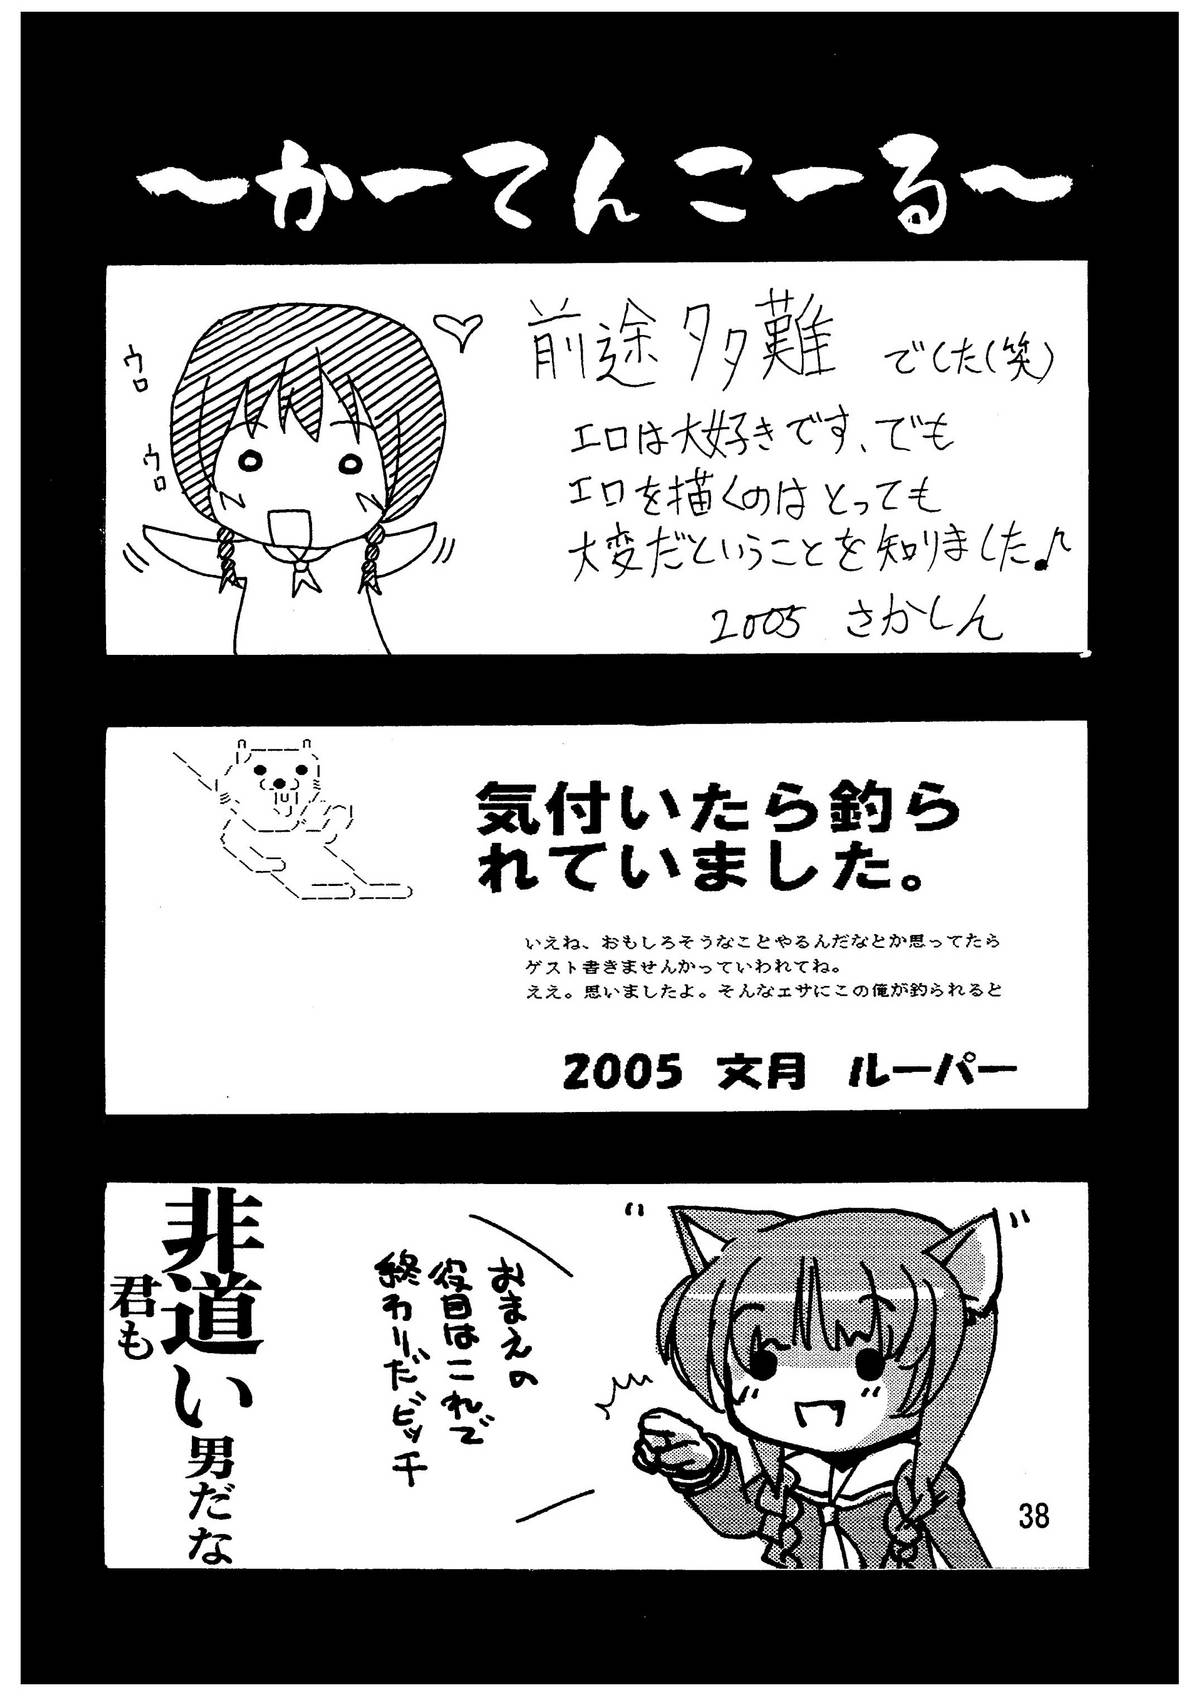 ～かーてんこーる～
ウロ
ウロ
前途多難でした(笑)
エロは大好きです、でも
エロを描くのはとっても
大変だということを知りました♪
2005 さかしん
気付いたら釣ら
れていました。
いえね、おもしろそうなことやるんだなとか思ってたら
ゲスト書きませんかっていわれてね。
ええ。思いましたよ。そんなエサにこの俺が釣られると
2005 文月 ルーパー
おまえの
役目はこれで
終わりだビッチ
君も
非道い男だな
38